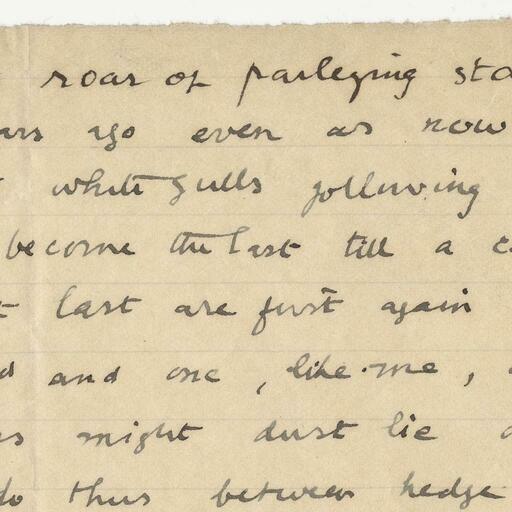 roar of parleying sta
ars ago even as now
white gulls following
become the last till a c
t last are first again
d and one, like me,
s might dust lie
do thus between hedge